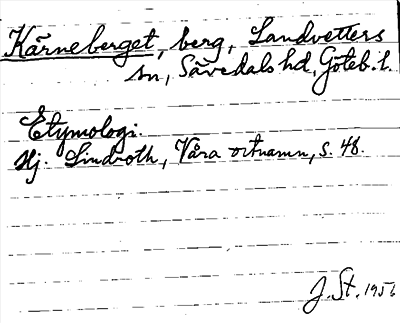 Kärneberget, berg, Landvetters
sn, Sävedals hd, Göteb. l.
Etymologi.
Hj. Lindroth, Våra ortnamn, s. 48.
J. St. 1956